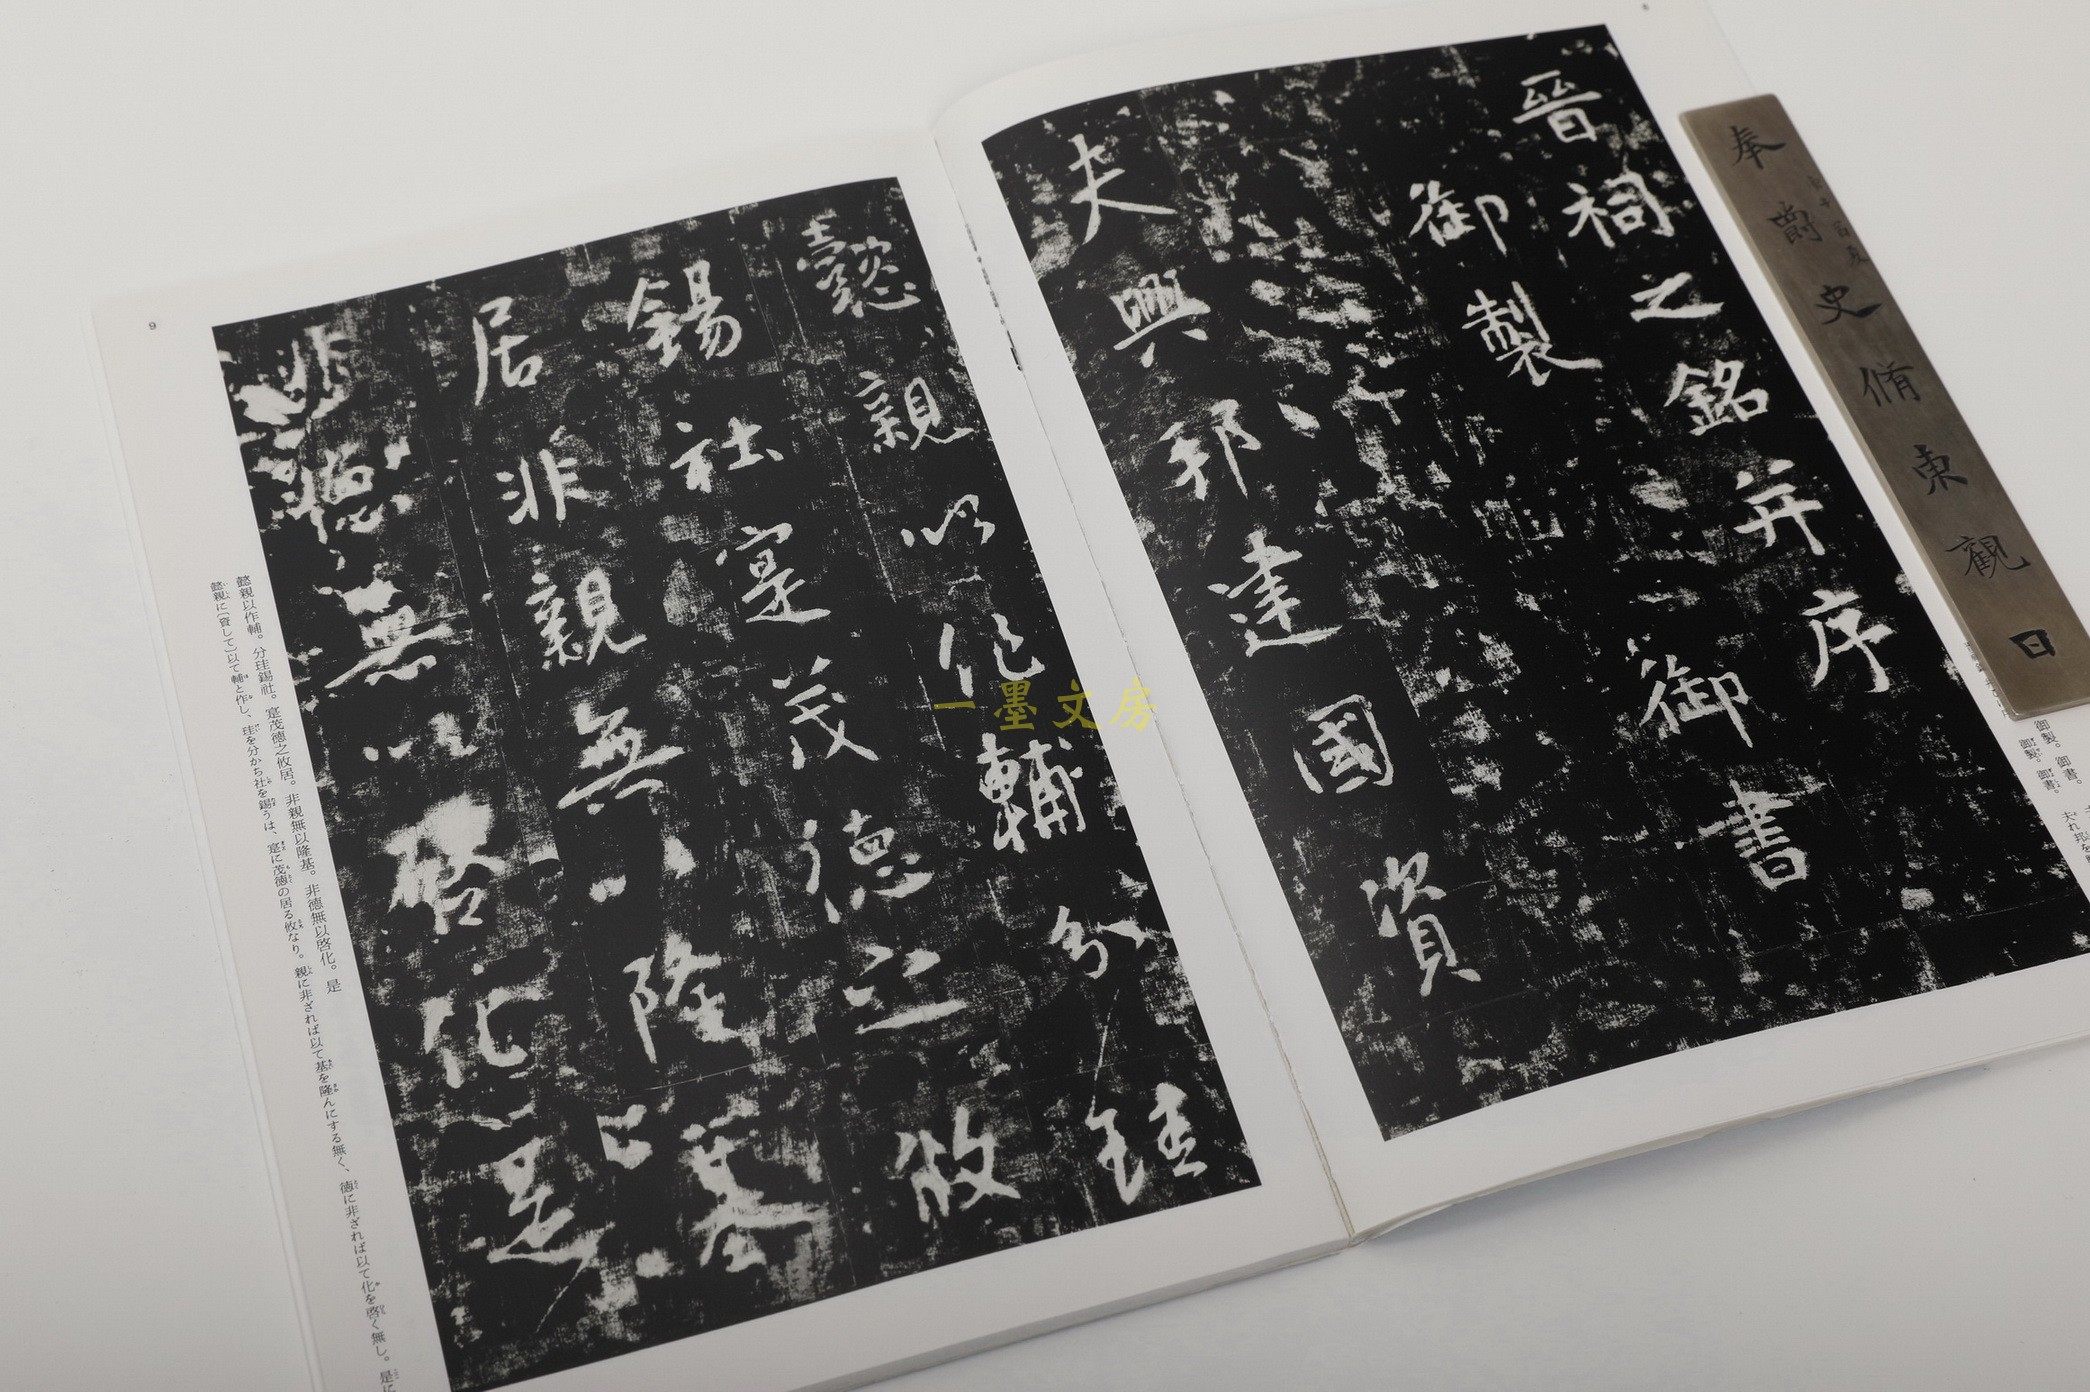 晉祠之銘并序
御製
御書
夫興邦建國資
懿親以作輔分珪
錫社寔茂德之攸
居非親無以隆基
非德無以啓化是
奉爵史脩東觀日
御製。御書。
御製。御書。
9
懿親以作輔。分珪錫社。寔茂德之攸居。非親無以隆基。非德無以啓化。是
懿親に〔資して〕以て輔と作し、珪を分かち社を錫うは、寔に茂德の居る攸なり。親に非ざれば以て基を隆んにする無く、德に非ざれば以て化を啓く無し。是に
一墨文房